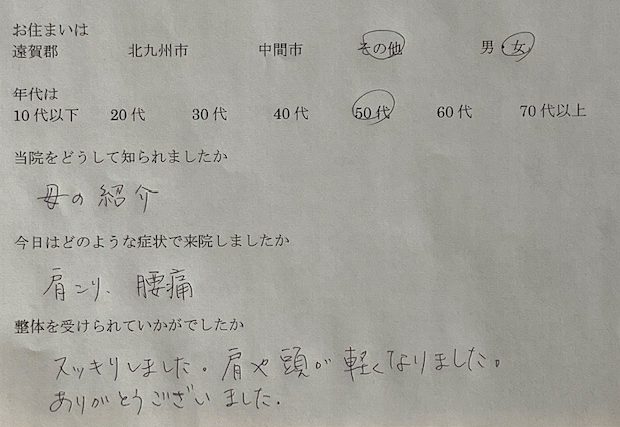 お住まいは
遠賀郡 北九州市 中間市 その他 男・女
年代は
10代以下 20代 30代 40代 50代 60代 70代以上
当院をどうして知られましたか
母の紹介
今日はどのような症状で来院しましたか
肩こり、腰痛
整体を受けられていかがでしたか
スッキリしました。肩や頭が軽くなりました。
ありがとうございました。